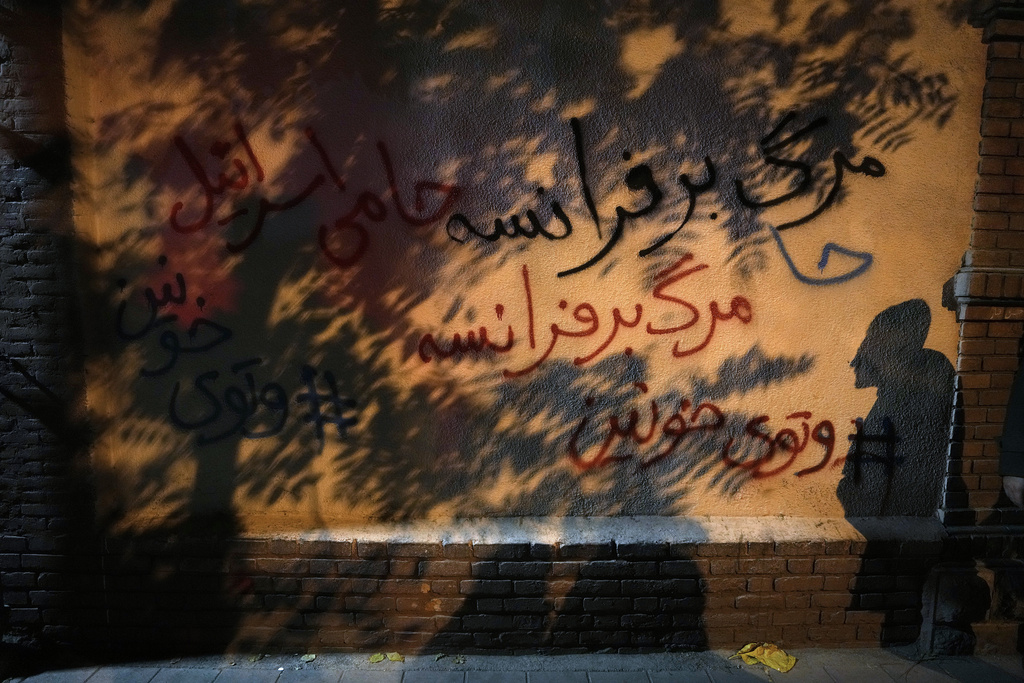 مرگ بر فرانسه حامی اسرائیل
حا
مرگ بر فرانسه
#وتوی خونین
#وتوی
خونین